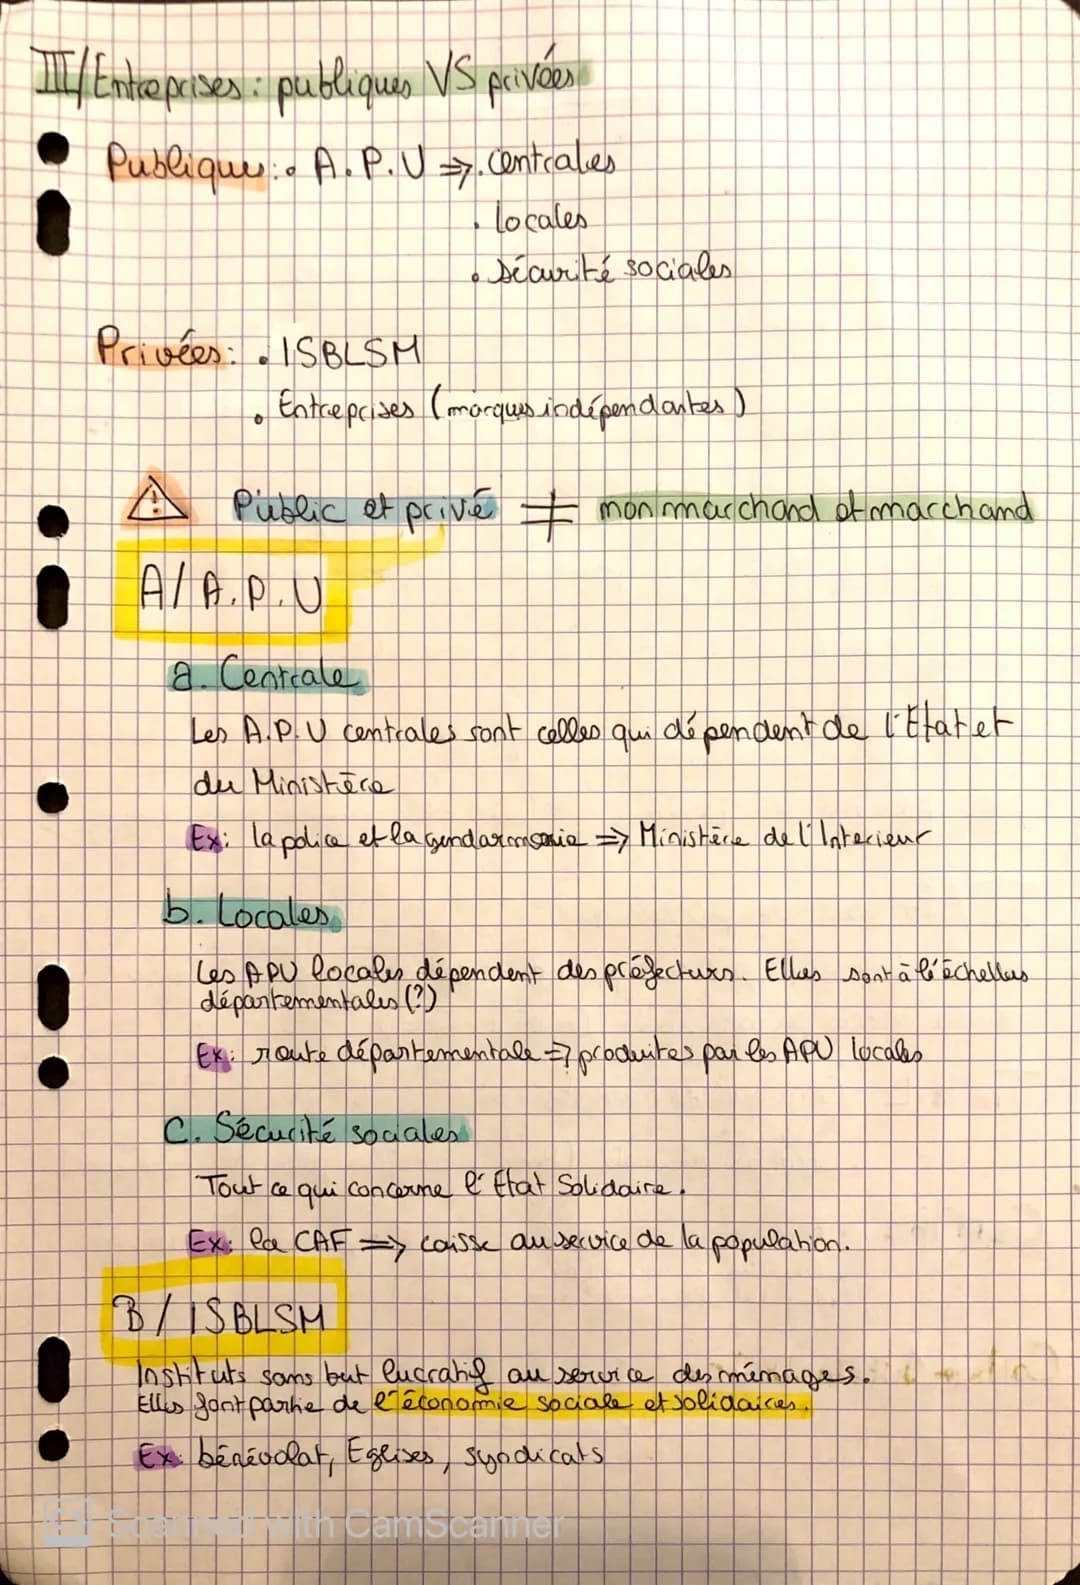 III/ Entreprises : publiques VS privées
Publiques : • A.P.U => • centrales
• locales
• sécurité sociales
Privées : • ISBLSM
• Entreprises (marques indépendantes)
⚠ Public et privé ≠ non marchand et marchand
A/ A.P.U
a. Centrale
Les A.P.U centrales sont celles qui dépendent de l'Etat et
du Ministère
Ex : la police et la gendarmerie => Ministère de l'Interieur
b. Locales
Les APU locales dépendent des préfectures. Elles sont à l'échelles
départementales (?)
Ex : route départementale => produites par les APU locales
C. Sécurité sociales
Tout ce qui concerne l'Etat Solidaire.
Ex : la CAF => caisse au service de la population.
B/ ISBLSM
Instituts sans but lucratif au service des ménages.
Elles font partie de l'économie sociale et solidaires.
Ex : bénévolat, Eglises, syndicats
CS Scanned with CamScanner